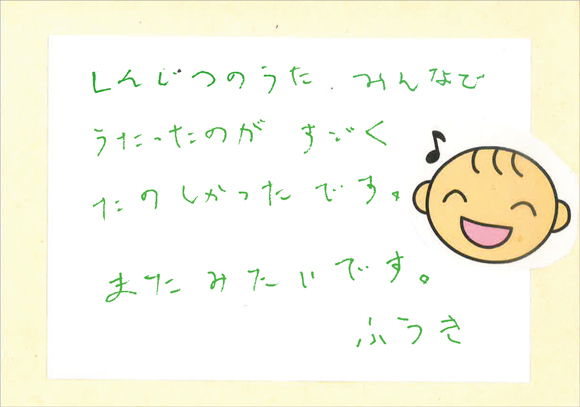 しんじつのうた、みんなで
うたったのが すごく
たのしかったです。
またみたいです。
ふうき